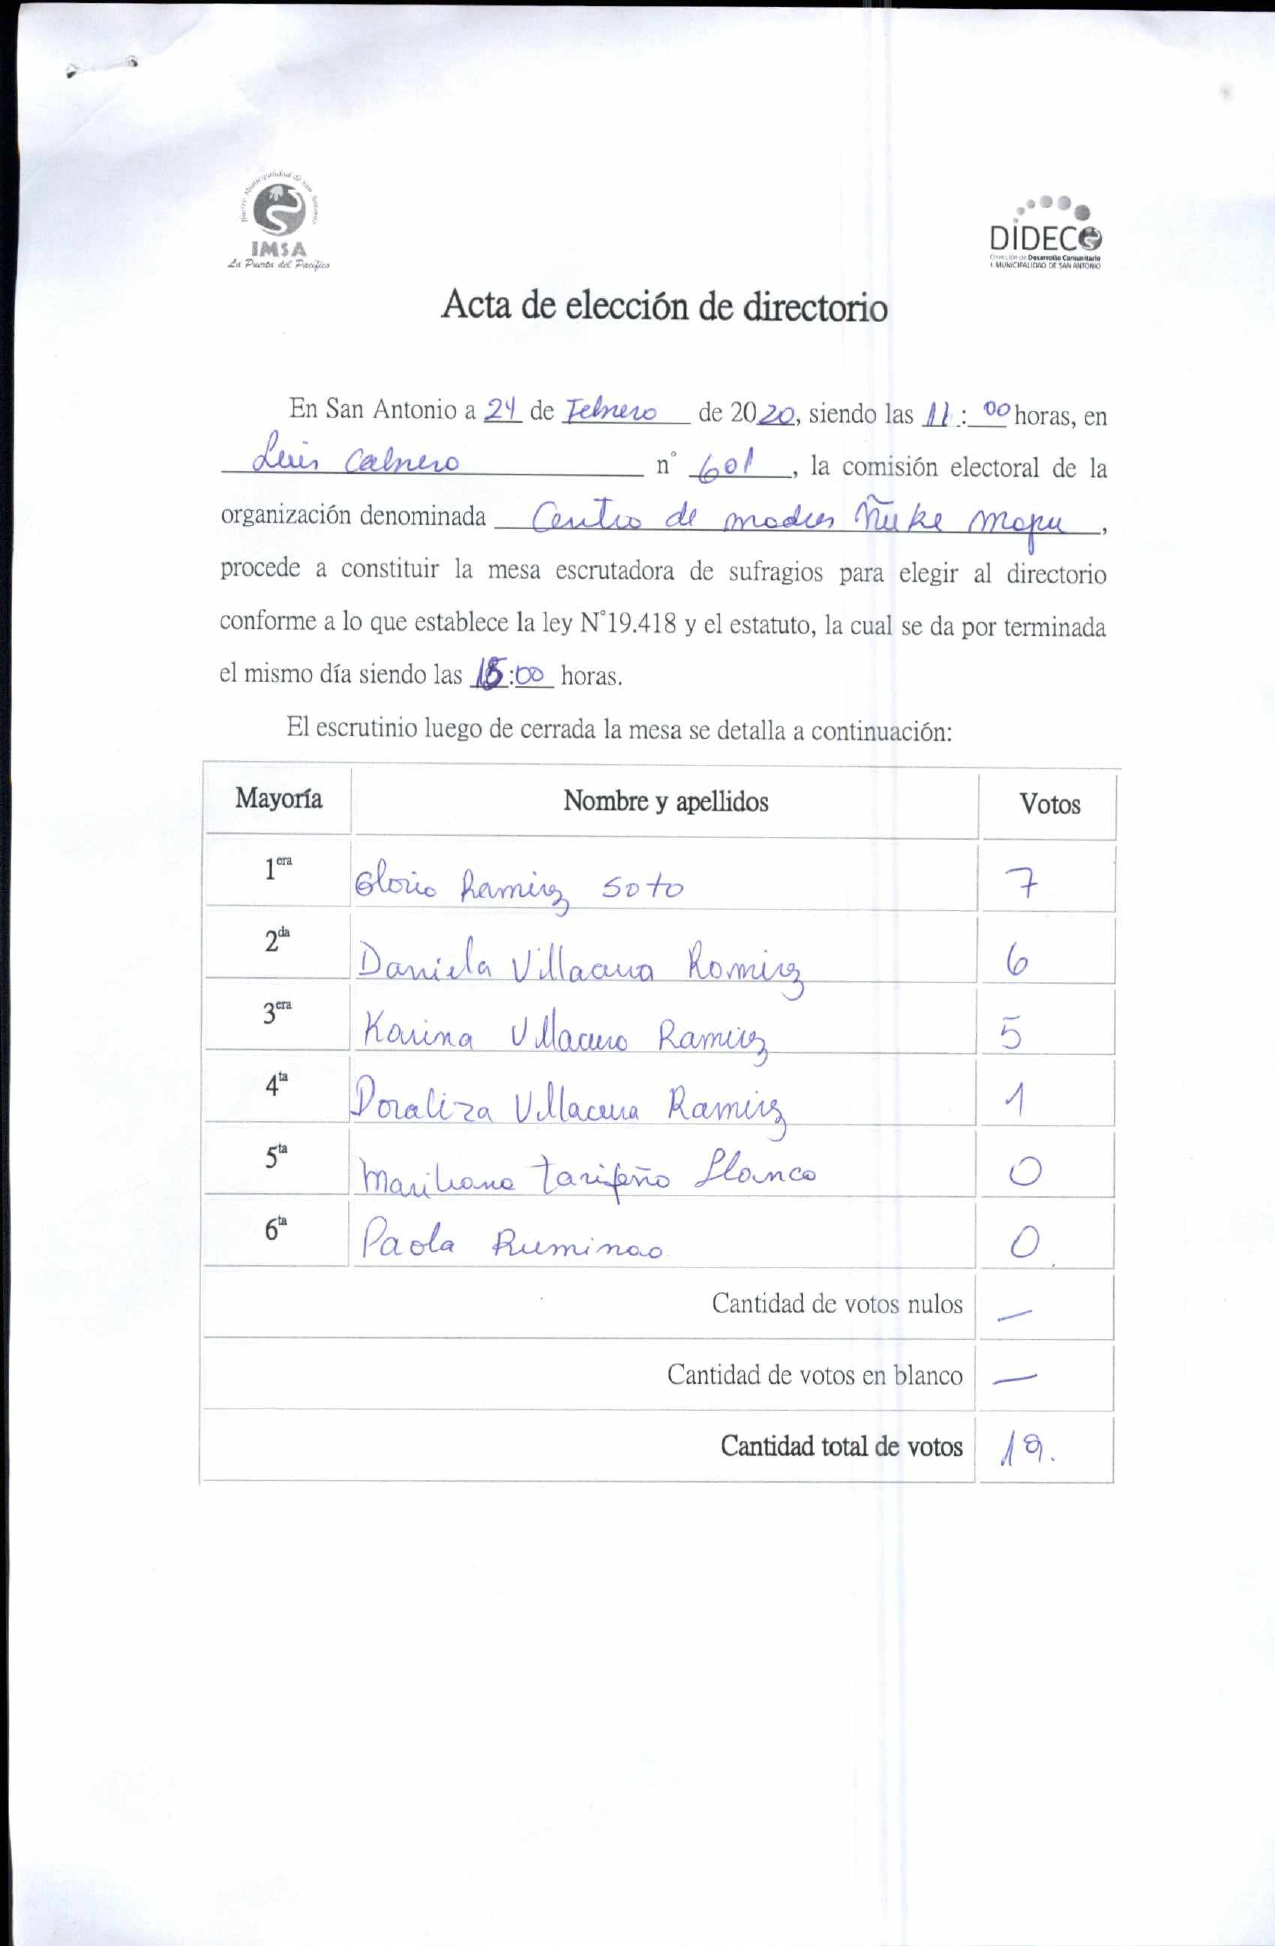 Ilustre Municipalidad de San Antonio
IMSA
La Puerta del Pacífico
DIDECO
Dirección de Desarrollo Comunitario
I. MUNICIPALIDAD DE SAN ANTONIO
Acta de elección de directorio
En San Antonio a 24 de Febrero de 2020, siendo las 11:00 horas, en
Luis Cabrero n° 601, la comisión electoral de la
organización denominada Centro de madres Ñuke Mapu,
procede a constituir la mesa escrutadora de sufragios para elegir al directorio
conforme a lo que establece la ley N°19.418 y el estatuto, la cual se da por terminada
el mismo día siendo las 15:00 horas.
El escrutinio luego de cerrada la mesa se detalla a continuación:
Mayoría Nombre y apellidos Votos
1era Gloria Ramirez Soto 7
2da Daniela Villacura Ramirez 6
3era Karina Villacura Ramirez 5
4ta Doraliza Villacura Ramirez 1
5ta Mariana Tarifeño Llanca 0
6ta Paola Ruminao 0
Cantidad de votos nulos —
Cantidad de votos en blanco —
Cantidad total de votos 19.